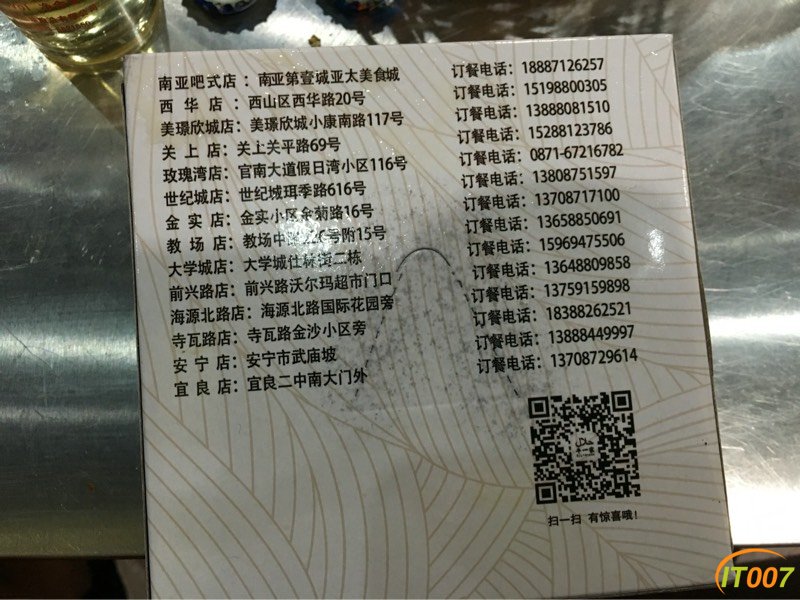 南亚吧式店：南亚第壹城亚太美食城 订餐电话：18887126257
西华店：西山区西华路20号 订餐电话：15198800305
美璟欣城店：美璟欣城小康南路117号 订餐电话：13888081510
关上店：关上关平路69号 订餐电话：15288123786
玫瑰湾店：官南大道假日湾小区116号 订餐电话：0871-67216782
世纪城店：世纪城珥季路616号 订餐电话：13808751597
金实店：金实小区金菊路16号 订餐电话：13708717100
教场店：教场中 号附15号 订餐电话：13658850691
大学城店：大学城仕林街二栋 订餐电话：15969475506
前兴路店：前兴路沃尔玛超市门口 订餐电话：13648809858
海源北路店：海源北路国际花园旁 订餐电话：13759159898
寺瓦路店：寺瓦路金沙小区旁 订餐电话：18388262521
安宁店：安宁市武庙坡 订餐电话：13888449997
宜良店：宜良二中南大门外 订餐电话：13708729614
扫一扫 有惊喜哦！
IT007